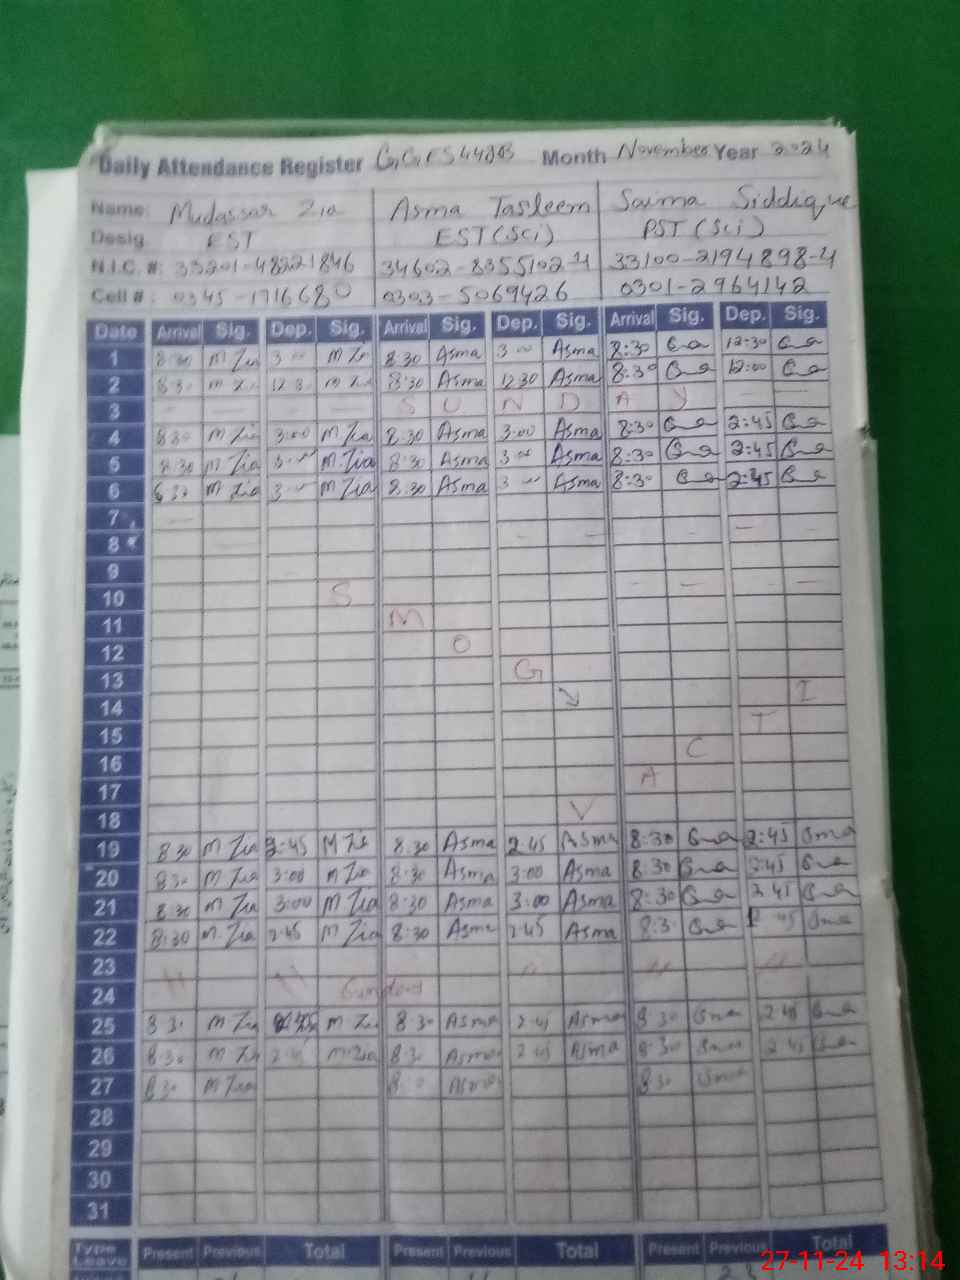 Daily Attendance Register GGES 44JB Month November Year 2024
Name: Mudassar Zia Asma Tasleem Saima Siddique
Desig. EST EST (Sci) PST (Sci)
N.I.C. #: 33201-48221846 34602-8355102-4 33100-2194898-4
Cell #: 0345-1716680 0303-5069426 0301-2964142
Date Arrival Sig. Dep. Sig. Arrival Sig. Dep. Sig. Arrival Sig. Dep. Sig.
1 8:30 M Zia 3:00 M Zia 8:30 Asma 3:00 Asma 8:30 12:30
2 8:30 M Zia 12:30 M Zia 8:30 Asma 12:30 Asma 8:30 12:00
3 S U N D A Y
4 8:30 M Zia 3:00 M Zia 8:30 Asma 3:00 Asma 8:30 2:45
5 8:30 M Zia 3:00 M.Zia 8:30 Asma 3:00 Asma 8:30 2:45
6 8:30 M Zia 3:00 M Zia 8:30 Asma 3:00 Asma 8:30 2:45
7
8
9
10 S
11 M
12 O
13 G
14 I
15 T
16 C
17 A
18 V
19 8:30 M Zia 2:45 M Zia 8:30 Asma 2:45 Asma 8:30 2:45
20 8:30 M Zia 3:00 M Zia 8:30 Asma 3:00 Asma 8:30 2:45
21 8:30 M Zia 3:00 M Zia 8:30 Asma 3:00 Asma 8:30 2:45
22 8:30 M.Zia 2:45 M Zia 8:30 Asma 2:45 Asma 8:30 2:45
23
24 Sunday
25 8:30 M Zia M Zia 8:30 Asma 2:45 Asma 8:30 2:45
26 8:30 M Zia 2:45 M.Zia 8:30 Asma 2:45 Asma 8:30 2:45
27 8:30 M Zia 8:30 Asma 8:30
28
29
30
31
Type Leave Present Previous Total Present Previous Total Present Previous Total
27-11-24 13:14